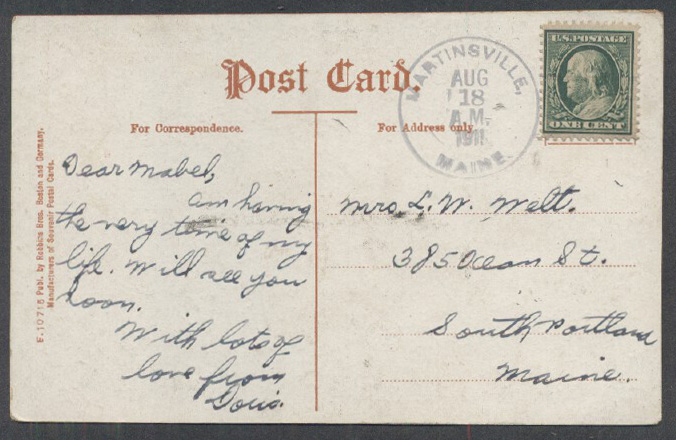 Post Card.
For Correspondence.
For Address only.
MARTINSVILLE,
AUG
18
A.M.
1911
MAINE.
U.S. POSTAGE
ONE CENT
E.10715 Publ. by Robbins Bros. Boston and Germany.
Manufacturers of Souvenir Postal Cards.
Dear Mabel,
am having
the very time of my
life. Will see you
soon.
With lots of
love from
Doris.
Mrs. L. W. Welt.
385 Ocean St.
South Portland
Maine.